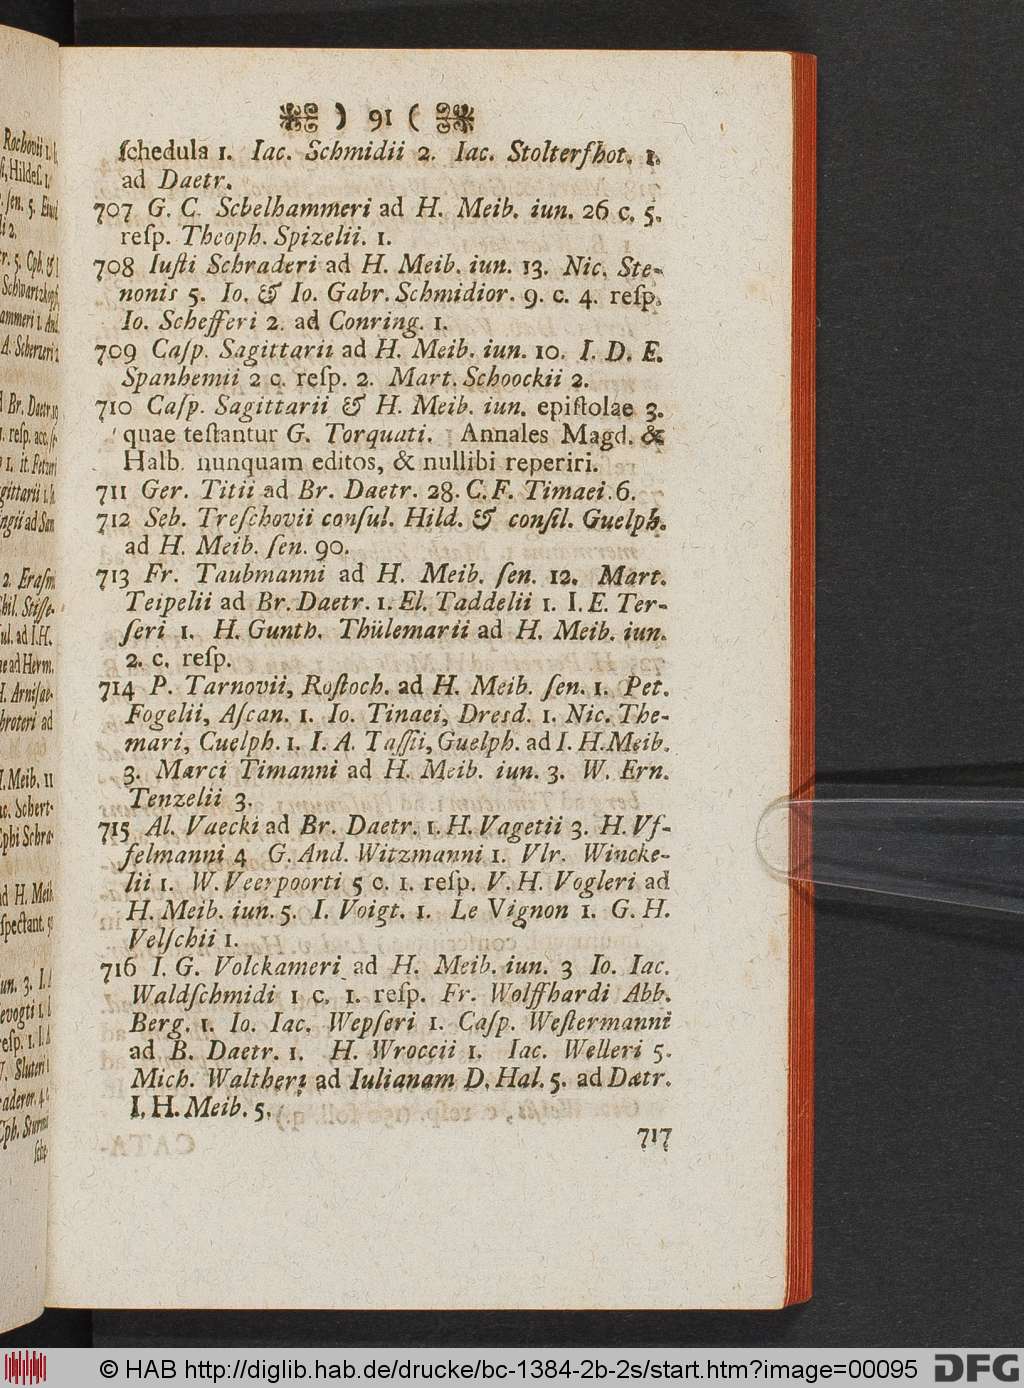 ) 91 (
ſchedula 1. Iac. Schmidii 2. Iac. Stolterfhot. 1.
ad Daetr.
707 G. C. Scbelhammeri ad H. Meib. iun. 26 c. 5.
reſp. Theoph. Spizelii. 1.
708 Iuſti Schraderi ad H. Meib. iun. 13. Nic. Ste-
nonis 5. Io. & Io. Gabr. Schmidior. 9. c. 4. reſp.
Io. Schefferi 2. ad Conring. 1.
709 Caſp. Sagittarii ad H. Meib. iun. 10. I. D. E.
Spanhemii 2 c. reſp. 2. Mart. Schoockii 2.
710 Caſp. Sagittarii & H. Meib. iun. epiſtolae 3.
quae teſtantur G. Torquati. Annales Magd. &
Halb. nunquam editos, & nullibi reperiri.
711 Ger. Titii ad Br. Daetr. 28. C. F. Timaei. 6.
712 Seb. Treſchovii conſul. Hild. & conſil. Guelph.
ad H. Meib. ſen. 90.
713 Fr. Taubmanni ad H. Meib. ſen. 12. Mart.
Teipelii ad Br. Daetr. 1. El. Taddelii 1. I. E. Ter-
ſeri 1. H. Gunth. Thülemarii ad H. Meib. iun.
2. c. reſp.
714 P. Tarnovii, Roſtoch. ad H. Meib. ſen. 1. Pet.
Fogelii, Aſcan. 1. Io. Tinaei, Dresd. 1. Nic. The-
mari, Cuelph. 1. I. A. Taſſii, Guelph. ad I. H. Meib.
3. Marci Timanni ad H. Meib. iun. 3. W. Ern.
Tenzelii 3.
715 Al. Vaecki ad Br. Daetr. 1. H. Vagetii 3. H. Vſ-
ſelmanni 4 G. And. Witzmanni 1. Vlr. Wincke-
lii 1. W. Veerpoorti 5 c. 1. reſp. V. H. Vogleri ad
H. Meib. iun. 5. I. Voigt. 1. Le Vignon 1. G. H.
Velſchii 1.
716 I. G. Volckameri ad H. Meib. iun. 3 Io. Iac.
Waldſchmidi 1 c. 1. reſp. Fr. Wolffhardi Abb.
Berg. 1. Io. Iac. Wepferi 1. Caſp. Weſtermanni
ad B. Daetr. 1. H. Wroccii 1. Iac. Welleri 5.
Mich. Waltheri ad Iulianam D. Hal. 5. ad Dætr.
I. H. Meib. 5.
717
© HAB http://diglib.hab.de/drucke/bc-1384-2b-2s/start.htm?image=00095 DFG